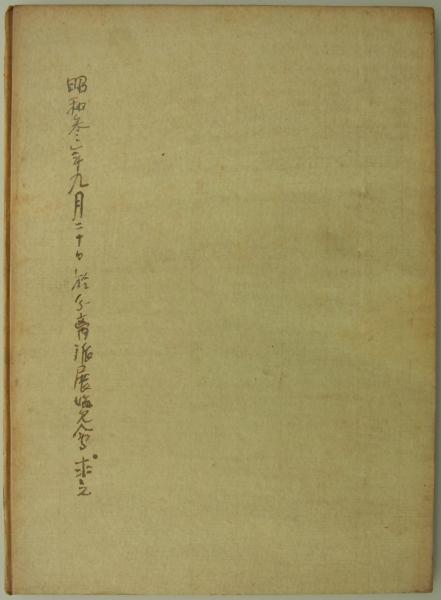 昭和参年九月二十日於青派展覧会求之